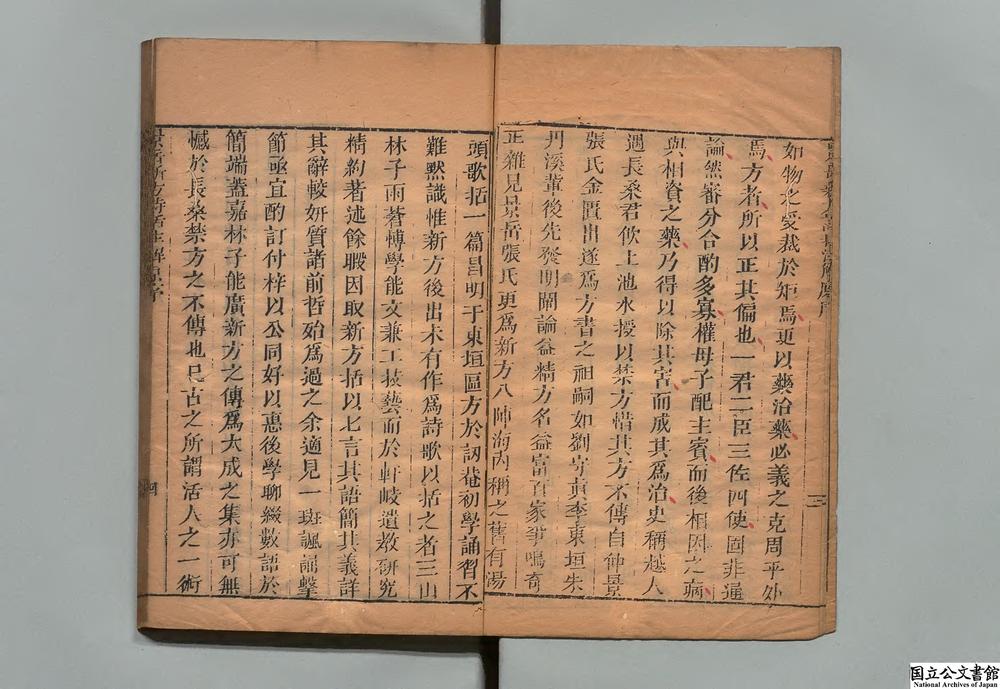 如物之受裁於矩焉更以藥治藥必義之克周乎處
焉方者所以正其偏也一君二臣三佐四使固非逼
論然審分合酌多寡權母子配主賓而後相因之病
與相資之藥乃得以除其害而成其爲治史稱越人
遇長桑君飲上池水授以禁方惜其方不傳自仲景
張氏金匱出遂爲方書之祖嗣如劉守真李東垣朱
丹溪輩後先發明闡論益精方名益富百家爭鳴奇
正雜見景岳張氏更爲新方八陣海內稱之舊有湯
三
頭歌括一篇昌明于東垣區方於訒菴初學誦習不
難默識惟新方後出未有作爲詩歌以括之者三山
林子雨蒼博學能文兼工技藝而於軒岐遺教研究
精約著述餘暇因取新方括以七言其語簡其義詳
其辭較妍質諸前哲殆爲過之余適見一斑諷誦擊
節亟宜酌訂付梓以公同好以惠後學聊綴數語於
簡端蓋嘉林子能廣新方之傳爲大成之集亦可無
憾於長桑禁方之不傳也已古之所謂活人之一術
四
国立公文書館
National Archives of Japan